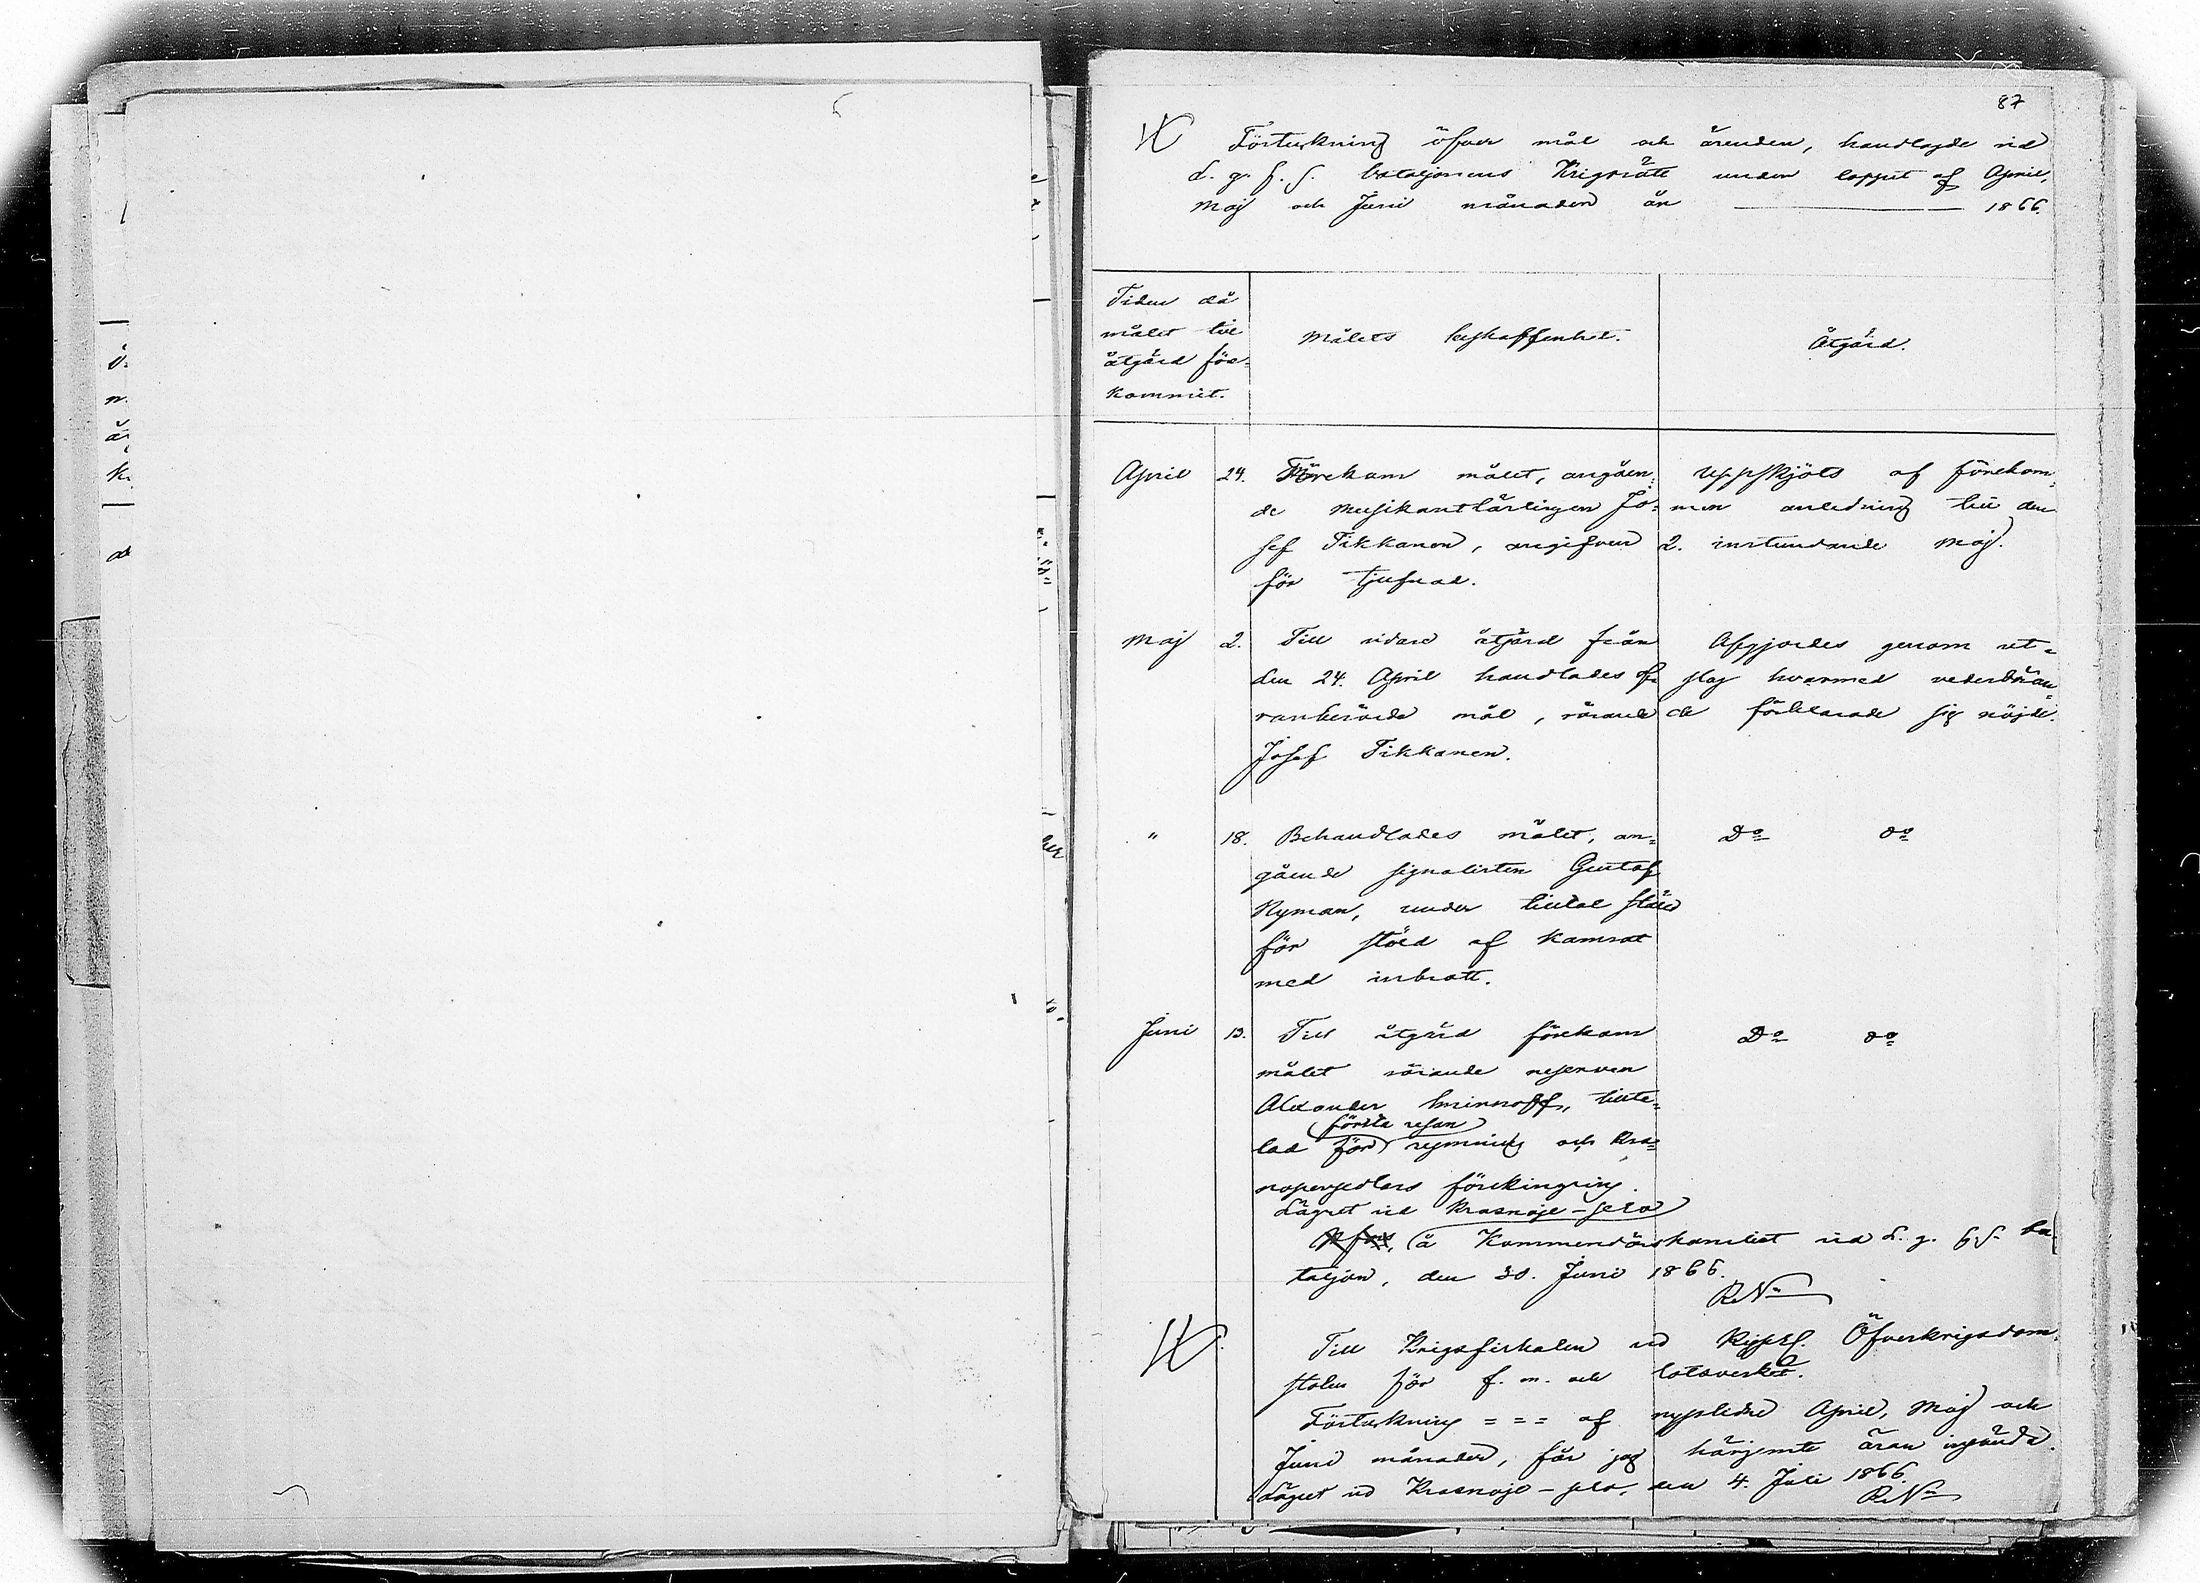 87
Förteckning öfver mål och ärenden, handlagde vid
L. g. f. s. bataljonens Krigsrätt under loppet af April,
Maj och Juni månader år 1866.
Tiden då
målet till
åtgärd före-
kommit.
Målets beskaffenhet.
Åtgärd.
April 24. Förekom målet, angåen-
de Musikantlärlingen Jo-
sef Tikkanen, angifven
för tjufnad.
Uppskjöts af förekom-
men anledning till den
2. instundande Maj.
Maj 2. Till vidare åtgärd från
den 24. April handlades of-
vanberörda mål, rörande
Josef Tikkanen.
Afgjordes genom ut-
slag hvarmed vederböran-
de förklarade sig nöjde.
" 18. Behandlades målet, an-
gående signalisten Gustaf
Nyman, under tilltal ställd
för stöld af kamrat
med inbrott.
Do do
Juni 13. Till åtgärd förekom
målet rörande reserven
Alexander Smirnoff, tillta-
första resan
lad för rymning och kro-
nopersedlars förskingring.
Do do
Lägret vid Krasnoje-selo
å Kommendörskansliet vid L. g. f. s. ba-
taljon, den 30. Juni 1866.
Till Krigsfiskalen vid Kejserl. Öfverkrigsdom-
stolen för f. m. och lotsverket.
Förteckning = = = af nyssledne April, Maj och
Juni månader, får jag härjemte äran insända.
Lägret vid Krasnoje-selo, den 4. Juli 1866.